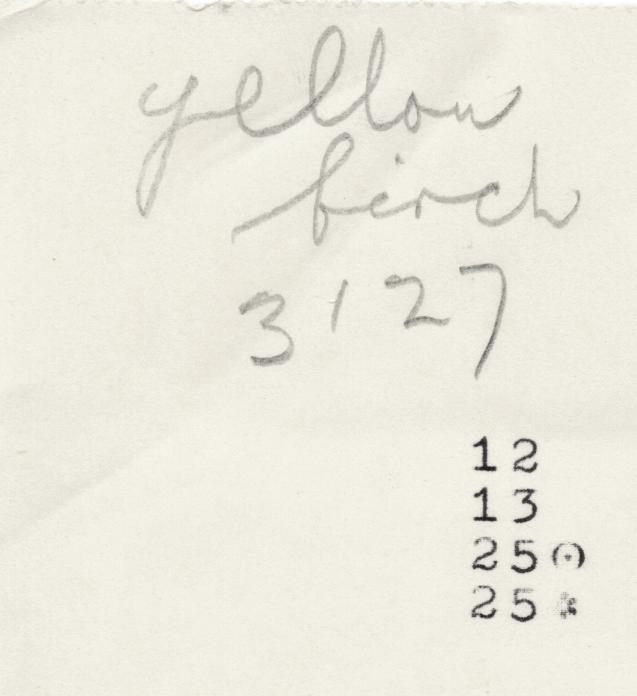 yellow
birch
3'27
12
13
25⊙
25*